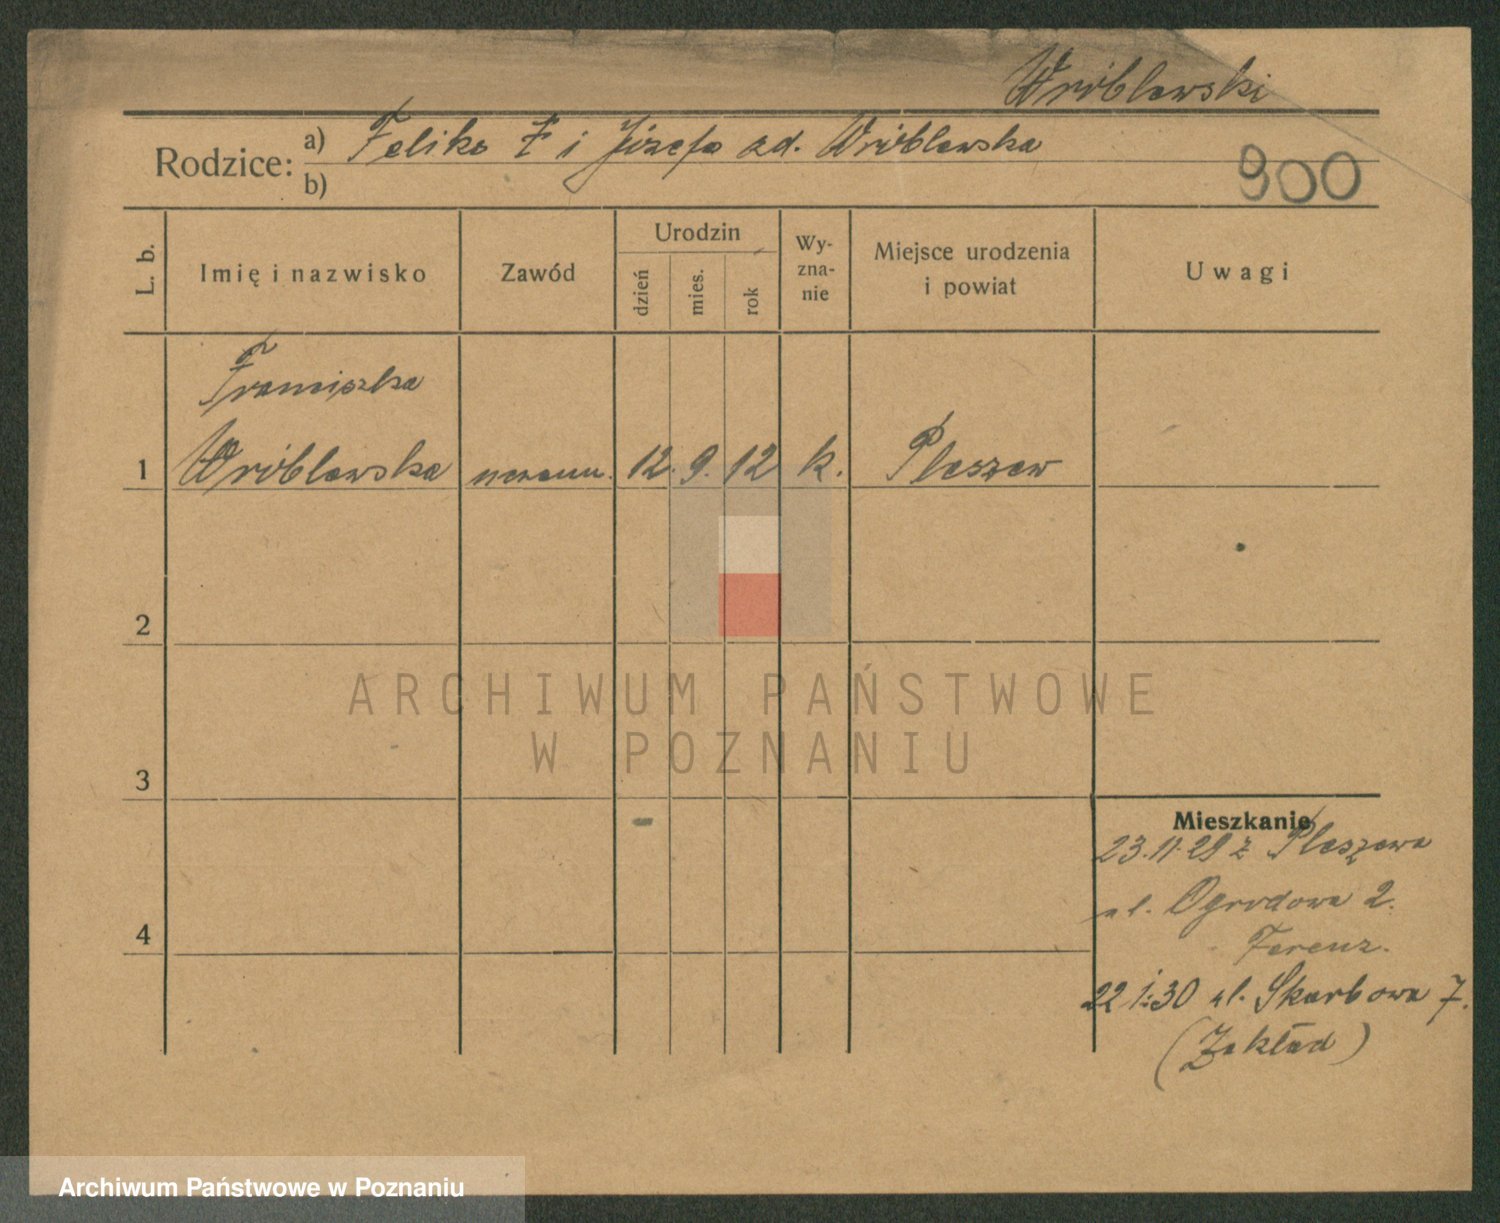 Wróblewski
Rodzice: a) Feliks Ł i Józefa zd. Wróblewska
b)
900
L. b.
Imię i nazwisko
Zawód
Urodzin
dzień
mies.
rok
Wy-
zna-
nie
Miejsce urodzenia
i powiat
Uwagi
Franciszka
1 Wróblewska 12. 9. 12 k. Pleszew
2
ARCHIWUM PAŃSTWOWE
W POZNANIU
3
Mieszkanie
23.11.29 z Pleszewa
ul. Ogrodowa 2.
4
22 1.30 ul. Skarbowa 7.
(Zakład)
Archiwum Państwowe w Poznaniu